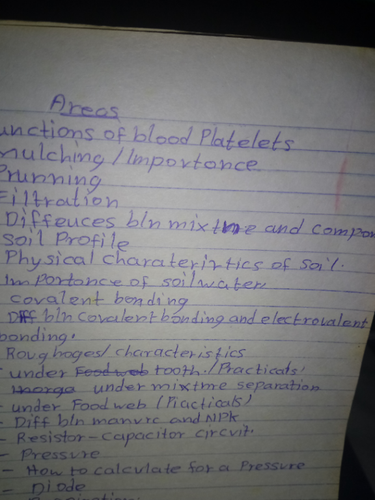 Areas
unctions of blood Platelets
mulching / Importance
Prunning
Filtration
Diffeuces btn mixture and compon
Soil Profile
Physical charateristics of soil.
Importance of soil water
covalent bonding
Diff btn covalent bonding and electrovalent
bonding.
Roughages/characteristics
- under Food web tooth (Practicals)
under mixtme separation
- under Food web (Practicals)
- Diff btn manure and NPK
- Resistor-capacitor circuit.
- Pressure
- How to calculate for a Pressure
- Diode